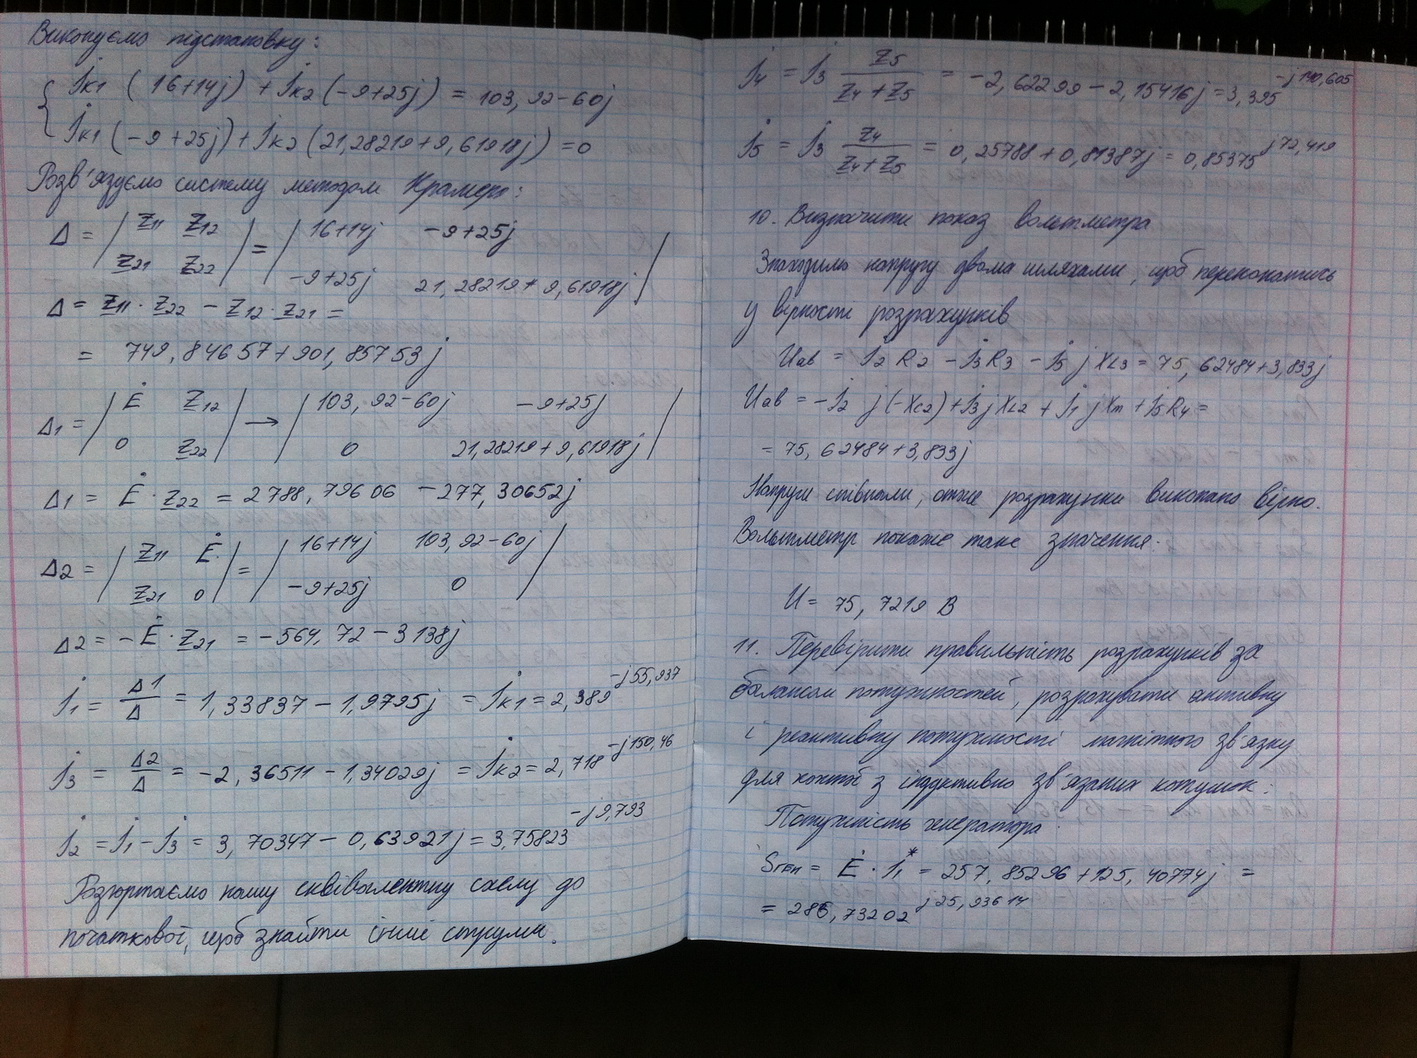 Виконуємо підстановку:
{ İк1 (16+14j) + İк2 (-9+25j) = 103,92-60j
İк1 (-9+25j) + İк2 (21,28219+9,61918j) = 0
Розв'язуємо систему методом Крамера:
Δ = | Z11 Z12 | = | 16+14j -9+25j |
| Z21 Z22 | | -9+25j 21,28219+9,61918j |
Δ = Z11 · Z22 - Z12 · Z21 =
= 749,84657+901,85753j
Δ1 = | Ė Z12 | → | 103,92-60j -9+25j |
| 0 Z22 | | 0 21,28219+9,61918j |
Δ1 = Ė · Z22 = 2788,79606 -277,30652j
Δ2 = | Z11 Ė | = | 16+14j 103,92-60j |
| Z21 0 | | -9+25j 0 |
Δ2 = -Ė · Z21 = -564,72-3138j
İ1 = Δ1/Δ = 1,33837-1,9795j = İк1 = 2,389^-j55,937
İ3 = Δ2/Δ = -2,36511-1,34029j = İк2 = 2,718^-j150,46
İ2 = İ1-İ3 = 3,70347-0,63921j = 3,75823^-j9,793
Розгортаємо нашу еквівалентну схему до
початкової, щоб знайти інші струми.
İ4 = İ3 Z5/(Z4+Z5) = -2,62299-2,15416j = 3,395^-j140,605
İ5 = İ3 Z4/(Z4+Z5) = 0,25788+0,81387j = 0,85375^j72,419
10. Визначити показ вольтметра
Знаходимо напругу двома шляхами, щоб переконатись
у вірності розрахунків
Uab = İ2R2 - İ3R3 - İ5jXL3 = 75,62484+3,833j
Uab = -İ2 j(-Xc2) + İ3jXL2 + İ1jXm + İ5R4 =
= 75,62484+3,833j
Напруги співпали, отже розрахунки виконано вірно.
Вольтметр покаже таке значення:
U = 75,7219 В
11. Перевірити правильність розрахунків за
балансом потужностей, розрахувати активну
і реактивну потужності магнітного зв'язку
для кожної з індуктивно зв'язаних котушок:
Потужність генератора
Sген = Ė · İ1* = 257,85296+125,40774j =
= 286,73202^j25,93614